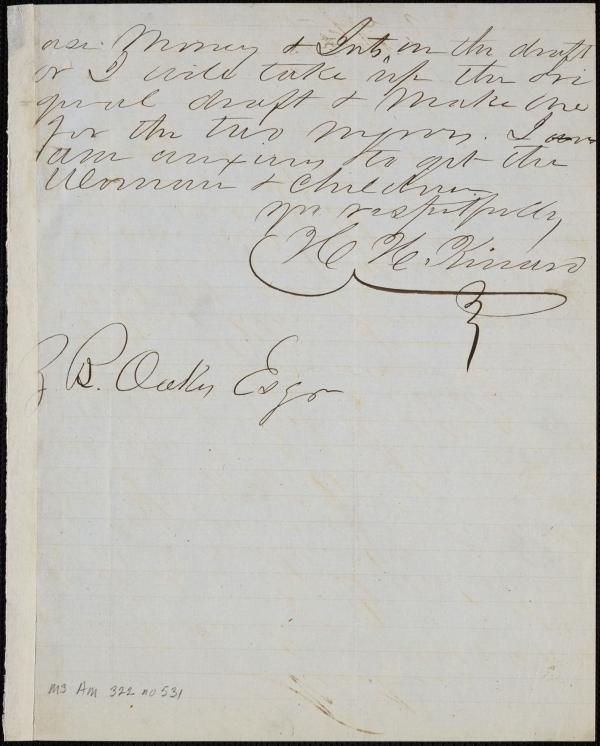 ase Money & Ints on the draft
or I will take up the ori
ginal draft & Make one
for the two negros. I am
am anxious to get the
Woman & children
yrs respectfully
H H. Kinard
Z B. Oakes Esqr
MS Am 322 no 531